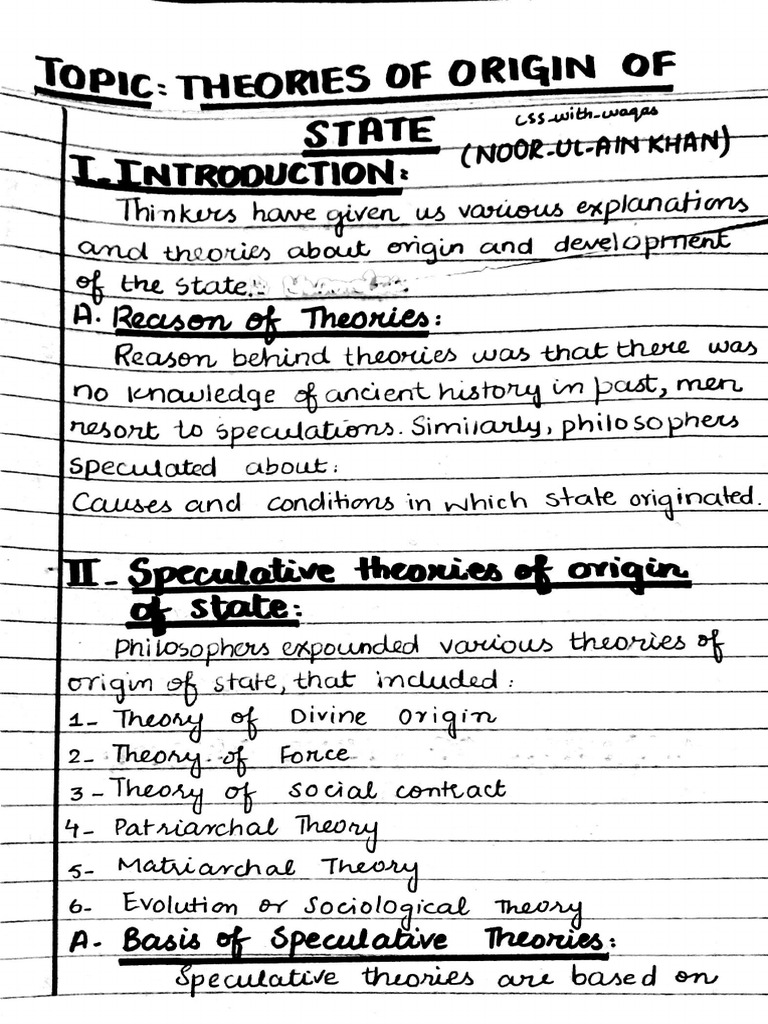 TOPIC: THEORIES OF ORIGIN OF
STATE
css_with_waqas
(NOOR-UL-AIN KHAN)
I. INTRODUCTION:
Thinkers have given us various explanations
and theories about origin and development
of the state.
A. Reason of Theories:
Reason behind theories was that there was
no knowledge of ancient history in past, men
resort to speculations. Similarly, philosophers
speculated about:
Causes and conditions in which state originated.
II - Speculative theories of origin
of state:
Philosophers expounded various theories of
origin of state, that included:
1- Theory of Divine Origin
2- Theory of Force
3- Theory of social contract
4- Patriarchal Theory
5- Matriarchal Theory
6- Evolution or Sociological Theory
A. Basis of Speculative Theories:
Speculative theories are based on